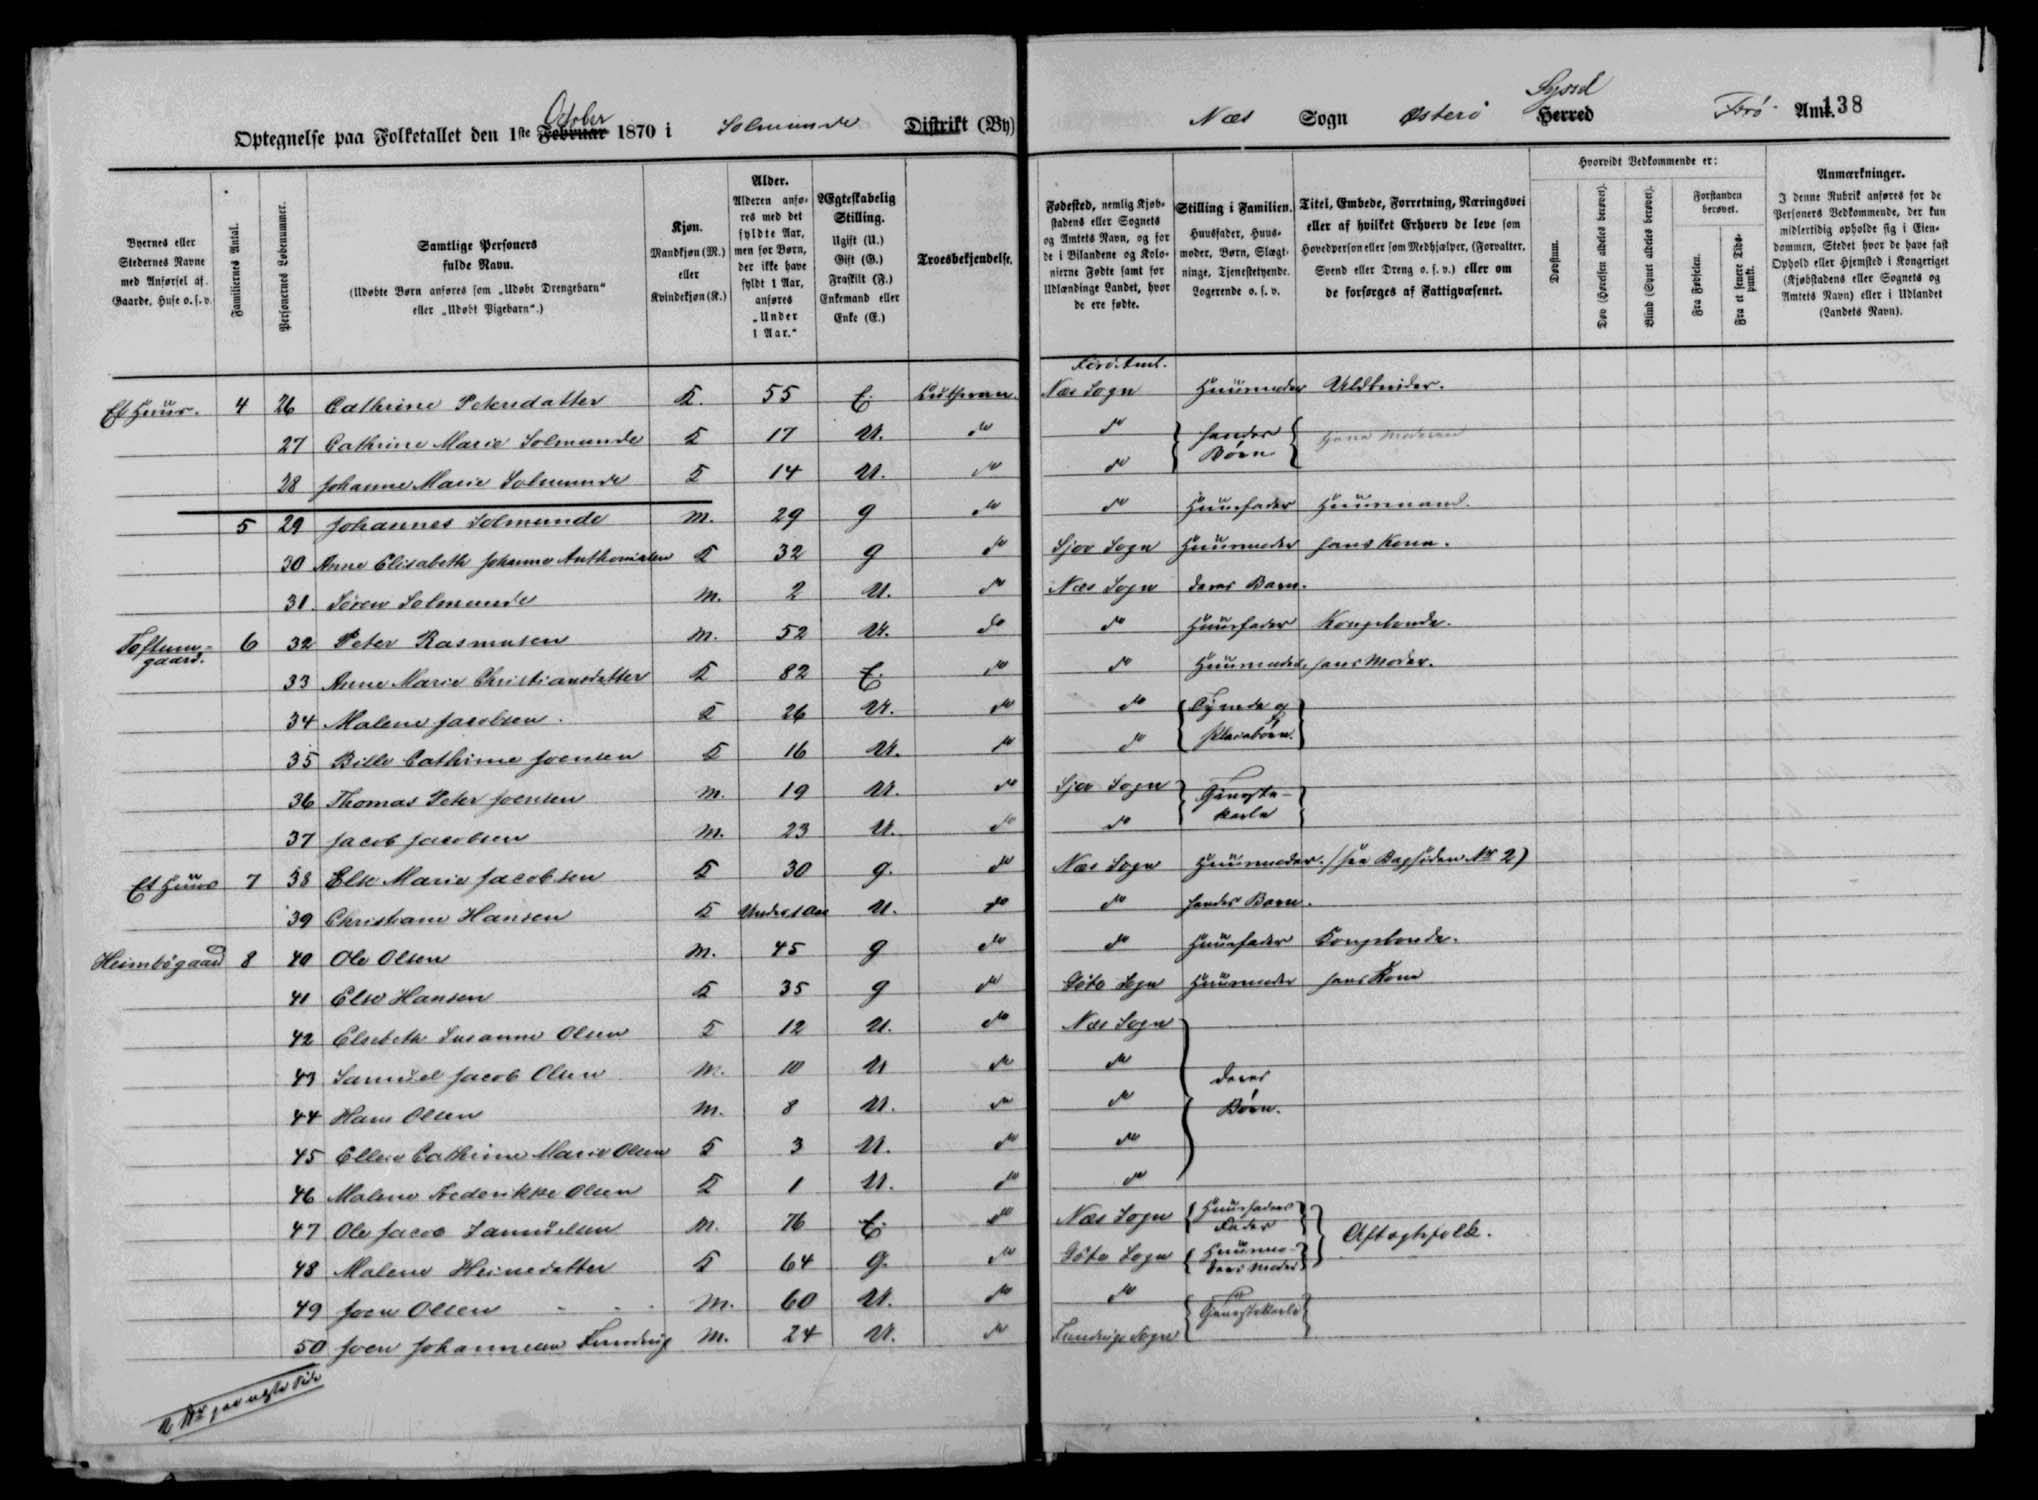 October
Optegnelse paa Folketallet den 1ste Februar 1870 i Solmunde Distrikt (By)
Næs Sogn Østerö Herred Syssel Færö Amt. 138
Byernes eller Stedernes Navne med Anførsel af Gaarde, Huse o. s. v.
Familiernes Antal.
Personernes Løbenummer.
Samtlige Personers fulde Navn.
(Udøbte Børn anføres som „Udøbt Drengebarn" eller „Udøbt Pigebarn".)
Kjøn.
Mandkjøn (M.) eller Kvindekjøn (K.)
Alder.
Alderen anføres med det fyldte Aar, men for Børn, der ikke have fyldt 1 Aar, anføres „Under 1 Aar."
Ægteskabelig Stilling.
Ugift (U.) Gift (G.) Fraskilt (F.) Enkemand eller Enke (E.)
Troesbekjendelse.
Fødested, nemlig Kjøbstadens eller Sognets og Amtets Navn, og for de i Bilandene og Kolonierne Fødte samt for Udlændinge Landet, hvor de ere fødte.
Stilling i Familien.
Huusfader, Huusmoder, Børn, Slægtninge, Tjenestetyende, Logerende o. s. v.
Titel, Embede, Forretning, Næringsvei eller af hvilket Erhverv de leve som Hovedperson eller som Medhjælper, (Forvalter, Svend eller Dreng o. s. v.) eller om de forsørges af Fattigvæsenet.
Hvorvidt Vedkommende er:
Døvstum.
Døv (Hørelsen aldeles berøvet).
Blind (Synet aldeles berøvet).
Forstanden berøvet.
Fra Fødselen.
Fra et senere Tidspunkt.
Anmærkninger.
I denne Rubrik anføres for de Personers Vedkommende, der kun midlertidig opholde sig i Eiendommen, Stedet hvor de have fast Ophold eller Hjemsted i Kongeriget (Kjøbstadens eller Sognets og Amtets Navn) eller i Udlandet (Landets Navn).
Færö Amt.
Et Huus. 4 26 Cathrine Petersdatter K. 55 E. Luthersan. Næs Sogn Huusmoder Uldtvider.
27 Cathrine Marie Solmunde K 17 U. do do } hendes Børn { hos Moderen
28 Johanne Marie Solmunde K 14 U. do do
5 29 Johannes Solmunde M. 29 g do do Huusfader Huusmand.
30 Anne Elisabeth Johanne Anthoniesen K 32 g do Sjov Sogn Huusmoder hans Kone.
31. Sören Solmunde M. 2 U. do Næs Sogn deres Barn.
Toftum-gaard. 6 32 Peter Rasmusen M. 52 U. do do Huusfader Kongsbonde.
33 Anne Marie Christiansdatter K 82 E. do do Huusmoder hans Moder.
34 Malene Jacobsen K 26 U. do do { Tyende og Pleiebørn. }
35 Bille Cathrine Joensen K 16 U. do do
36 Thomas Peter Joensen M. 19 U. do Sjov Sogn } Tjenestekarle {
37 Jacob Jacobsen M. 23 U. do do
Et Huus 7 38 Else Marie Jacobsen K 30 g. do Næs Sogn Huusmoder. (see Bagsiden No 2)
39 Christiane Hansen K Under 1 Aar U. do do hendes Barn.
Heimbögaard 8 40 Ole Olsen M. 45 g do do Huusfader Kongsbonde.
41 Else Hansen K 35 g do Göte Sogn Huusmoder hans Kone
42 Elsebeth Susanne Olsen K 12 U. do Næs Sogn } deres Børn.
43 Samuel Jacob Olsen M. 10 U do do
44 Hans Olsen M. 8 U. do do
45 Ellen Cathrine Marie Olsen K 3 U. do do
46 Malene Frederikke Olsen K 1 U. do do
47 Ole Jacob Samuelsen M. 76 E. do Næs Sogn { Huusfaders Fader } Aftægtsfolk.
48 Malene Heinesdatter K 64 g. do Göte Sogn { Huusmoders Moder }
49 Joen Olsen M. 60 U. do do { Tjenestekarle }
50 Joen Johannesen Funding M. 24 U. do Fundings Sogn